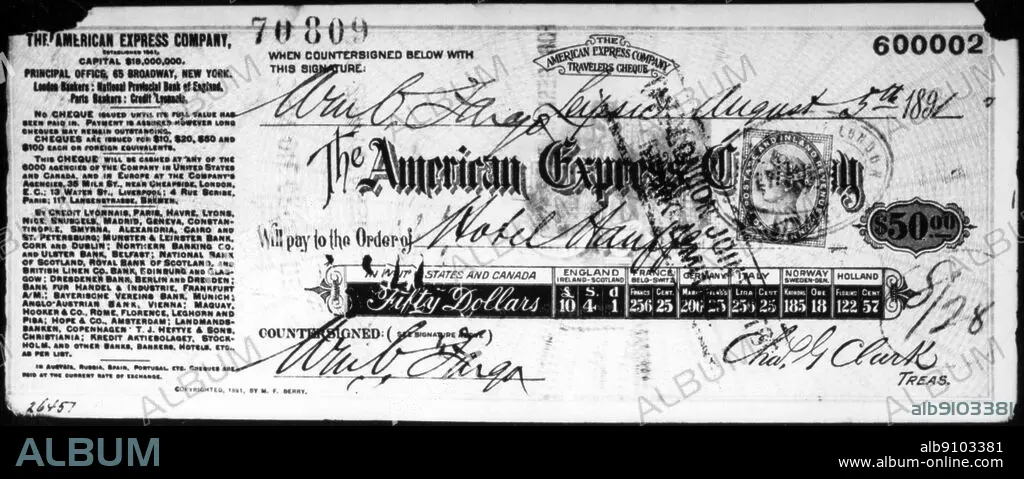 70809
THE AMERICAN EXPRESS COMPANY,
ESTABLISHED 1841.
CAPITAL $18,000,000.
PRINCIPAL OFFICE, 65 BROADWAY, NEW YORK.
London Bankers: National Provincial Bank of England.
Paris Bankers: Credit Lyonnais.
NO CHEQUE ISSUED UNTIL ITS FULL VALUE HAS
BEEN PAID IN. PAYMENT IS ASSURED HOWEVER LONG
CHEQUES MAY REMAIN OUTSTANDING.
CHEQUES ARE ISSUED FOR $10, $20, $50 AND
$100 EACH OR FOREIGN EQUIVALENTS.
THIS CHEQUE WILL BE CASHED AT ANY OF THE
6000 AGENCIES OF THE COMPANY IN UNITED STATES
AND CANADA, AND IN EUROPE AT THE COMPANY'S
AGENCIES, 35 MILK ST., NEAR CHEAPSIDE, LONDON,
E. C.; 13 WATER ST., LIVERPOOL; 4 RUE SCRIBE,
PARIS; 117 LANGENSTRASSE, BREMEN.
BY CREDIT LYONNAIS, PARIS, HAVRE, LYONS,
NICE, BRUSSELS, MADRID, GENEVA, CONSTAN-
TINOPLE, SMYRNA, ALEXANDRIA, CAIRO AND
ST. PETERSBURG; MUNSTER & LEINSTER BANK,
CORK AND DUBLIN; NORTHERN BANKING CO.
AND ULSTER BANK, BELFAST; NATIONAL BANK
OF SCOTLAND, ROYAL BANK OF SCOTLAND, AND
BRITISH LINEN CO. BANK, EDINBURG AND GLAS-
GOW; DRESDENER BANK, BERLIN AND DRESDEN;
BANK FUR HANDEL & INDUSTRIE, FRANKFURT
A/M.; BAYERISCHE VEREINS BANK, MUNICH;
ANGLO-AUSTRIAN BANK, VIENNA; MAQUAY,
HOOKER & CO., ROME, FLORENCE, LEGHORN AND
PISA; HOPE & CO., AMSTERDAM; LANDMANDS-
BANKEN, COPENHAGEN; T. J. HEFTYE & SONS,
CHRISTIANIA; KREDIT AKTIEBOLAGET, STOCK-
HOLM, AND OTHER BANKS, BANKERS, HOTELS, ETC.,
AS PER LIST.
IN AUSTRIA, RUSSIA, SPAIN, PORTUGAL, ETC. CHEQUES ARE
PAID AT THE CURRENT RATE OF EXCHANGE.
26457
WHEN COUNTERSIGNED BELOW WITH
THIS SIGNATURE:
THE
AMERICAN EXPRESS COMPANY
TRAVELERS CHEQUE
600002
Wm C. Fargo Leipsic August 5th 1891
The American Express Company
LONDON
$50.00
Will pay to the Order of Hotel Hauffe
IN UNITED STATES AND CANADA
Fifty Dollars
ENGLAND FRANCE GERMANY ITALY NORWAY HOLLAND
IRELAND-SCOTLAND BELG-SWITZ SWEDEN-DEN.
£ S. d FRANCS CENT LIRA CENT KRONEN ORE
10 4 1 256 25 256 25 185 18 122 57
COUNTERSIGNED: (SEE SIGNATURE ABOVE)
Wm C. Fargo
Chas G Clark
TREAS.
COPYRIGHTED, 1891, BY M. F. BERRY.
ALBUM
alb9103381
ALBUM
alb9103381
www.album-online.com